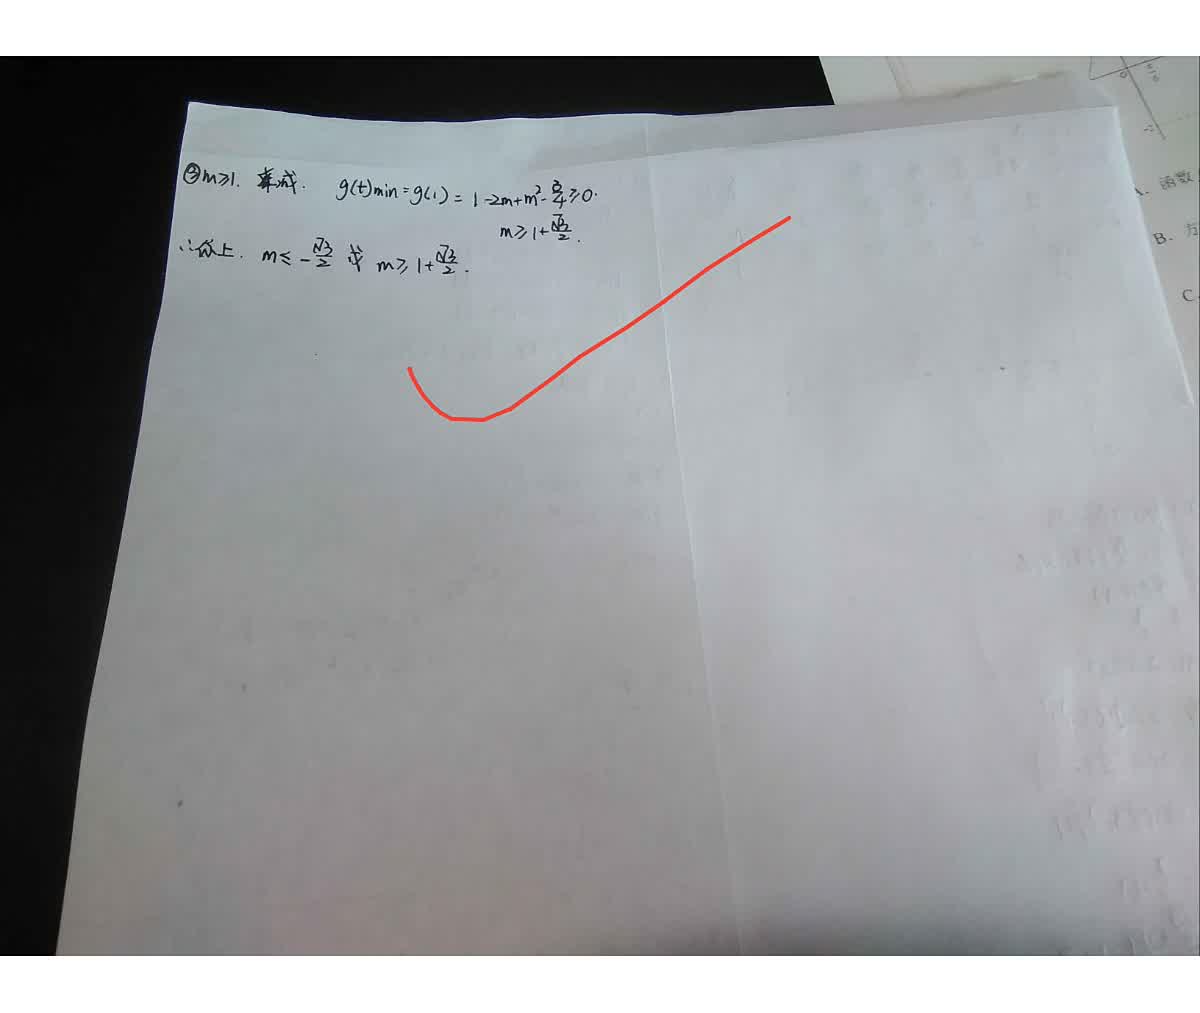 ③m≥1. g(t)min=g(1)=1-2m+m²-3/4≥0.
m≥1+√3/2.
∴综上. m≤-√3/2 或 m≥1+√3/2.
0
A. 函数
B. 方
C.